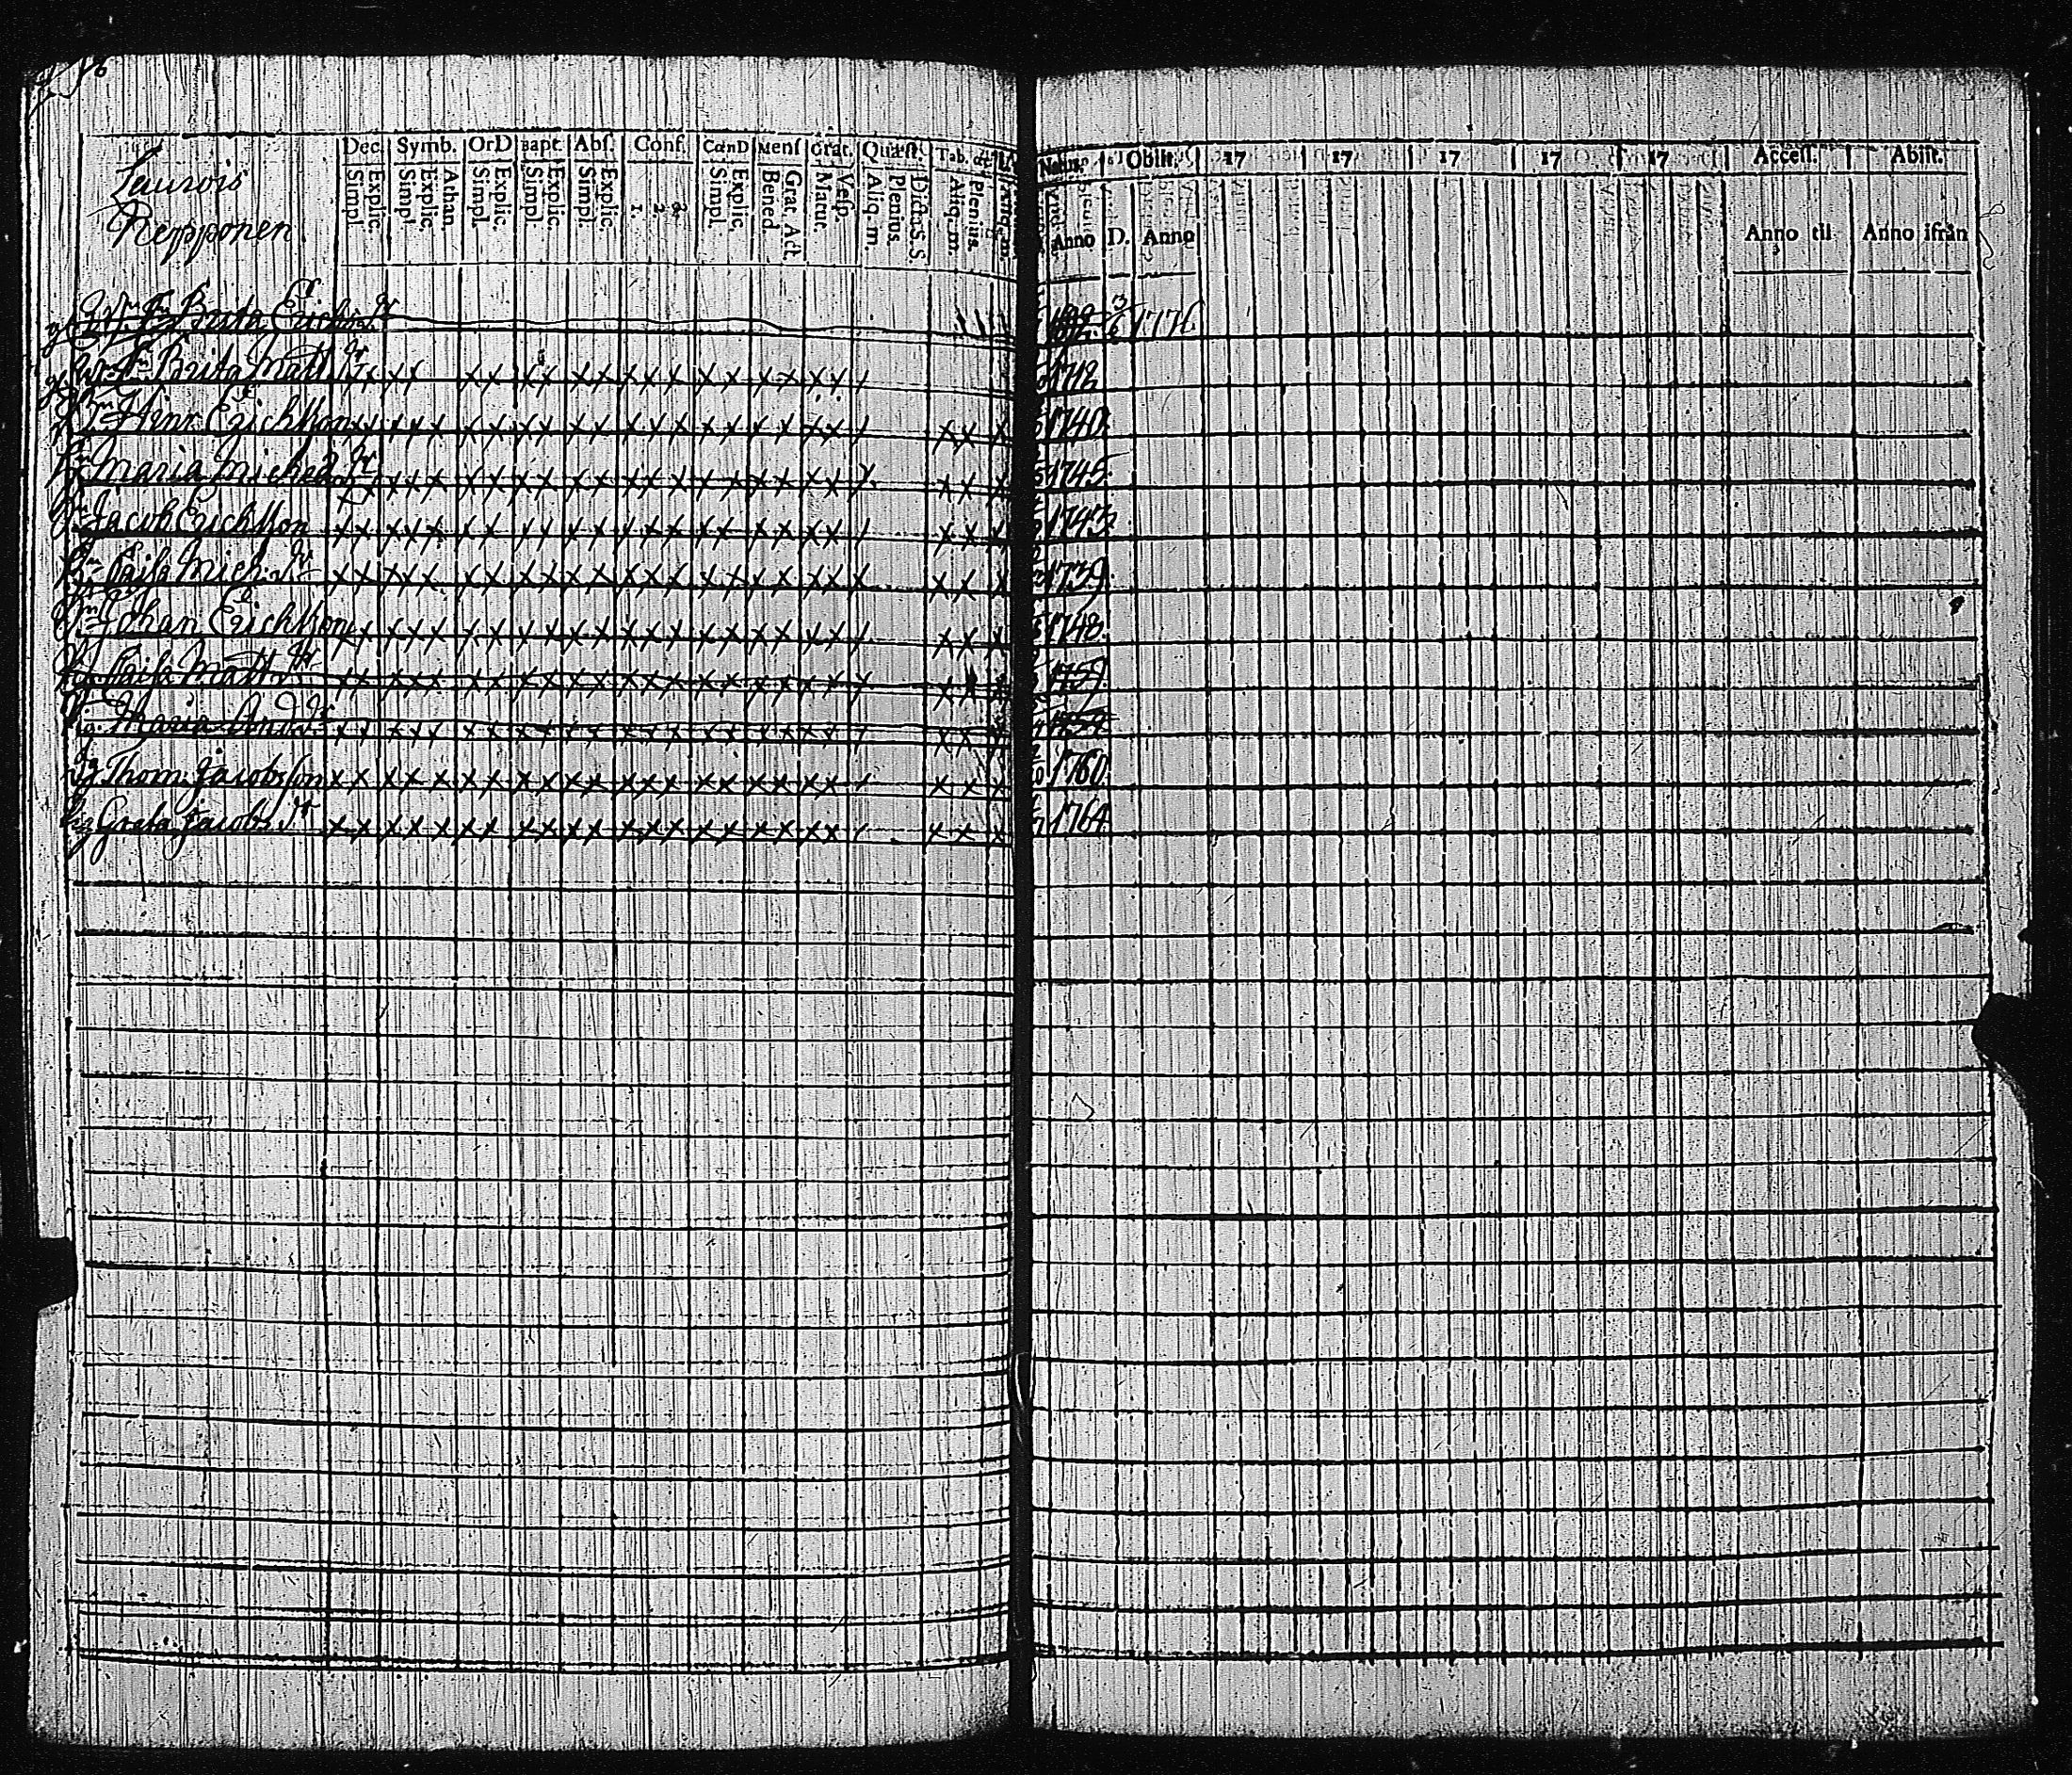 Laurois
Repponen
Dec. Symb. OrD Bapt. Abſ. Conf. CœnD Menſ Grat. Quæſt. Tab. œc
Simpl. Explic. Simpl. Explic. Athan. Simpl. Explic. Simpl. Explic. Simpl. Explic. 1. 2. 3. Simpl. Explic. Bened. Grat. Act. Matut. Veſp. Aliq. m. Plenius. Dicta S. S. Aliq. m. Plenius.
Obiit. 17 17 17 17 17 Acceſſ. Abiit.
Anno D. Anno Anno til Anno ifrån
Brita Erichs dr 1776
Brita Matt. dr x x x x x x x x x x x x x x x x x x x x 1712
Henr Erichsson x x x x x x x x x x x x x x x x x x x x x x x x 1740.
Maria Michels dr x x x x x x x x x x x x x x x x x x x x x x x x 1745.
Jacob Erichsson x x x x x x x x x x x x x x x x x x x x x x x x 1743
Caisa Mich. dr x x x x x x x x x x x x x x x x x x x x x x x x 1739.
Johan Erichsson x x x x x x x x x x x x x x x x x x x x x x x x 1748.
Caisa Matt. dr x x x x x x x x x x x x x x x x x x x x x x x x 1759.
Maria And. dr x x x x x x x x x x x x x x x x x x x x x x x x
Thom. Jacobsson x x x x x x x x x x x x x x x x x x x x x x x x 1760.
Greta Jacobs dr x x x x x x x x x x x x x x x x x x x x x x x x 1764